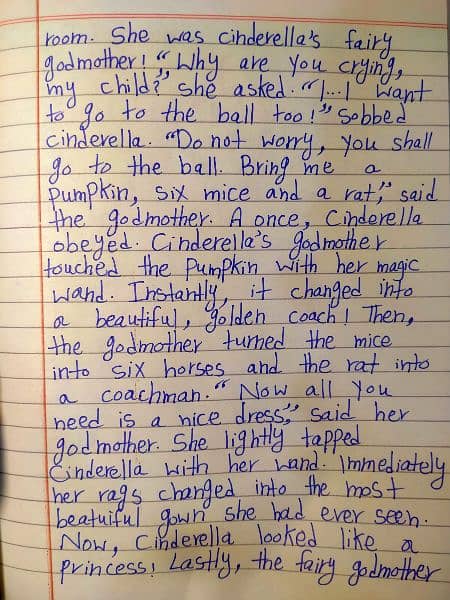 room. She was cinderella's fairy
godmother! "Why are you crying,
my child?" she asked. "I...I want
to go to the ball too!" Sobbed
cinderella. "Do not worry, you shall
go to the ball. Bring me a
Pumpkin, six mice and a rat," said
the godmother. A once, Cinderella
obeyed. Cinderella's godmother
touched the Pumpkin with her magic
wand. Instantly, it changed into
a beautiful, golden coach! Then,
the godmother turned the mice
into six horses and the rat into
a coachman. "Now all you
need is a nice dress," said her
godmother. She lightly tapped
Cinderella with her wand. Immediately
her rags changed into the most
beatuiful gown she had ever seen.
Now, Cinderella looked like a
Princess! Lastly, the fairy godmother